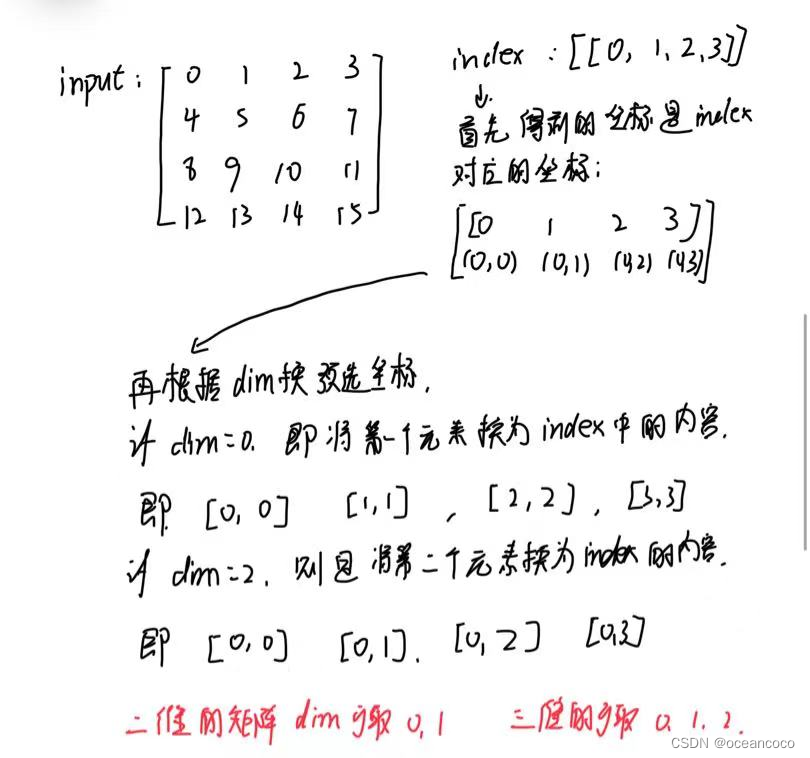 input: [ 0 1 2 3
4 5 6 7
8 9 10 11
12 13 14 15 ]
index : [[0, 1, 2, 3]]
↓
首先得到的坐标是index
对应的坐标:
[[0 1 2 3]
(0,0) (0,1) (0,2) (0,3)]
再根据dim换预选坐标.
计dim=0. 即将第一个元素换为index中的内容.
即 [0, 0] [1,1] , [2, 2] , [3,3]
计dim=2, 则是将第二个元素换为index的内容.
即 [0, 0] [0,1]. [0, 2] [0,3]
二维的矩阵dim可取0,1 三维的可取0.1.2.
CSDN @oceancoco